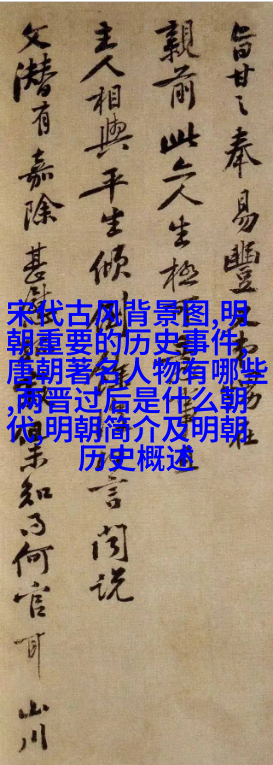 旨甘之奉易豐
親前此亦人生極可
主人相與平生傾倒言閱說
文潛有嘉除甚慰果知為何官耳山川
宋代古风背景图,明
朝重要的历史事件,
唐朝著名人物有哪些
,两晋过后是什么朝
代-明朝简介及明朝
历史概述